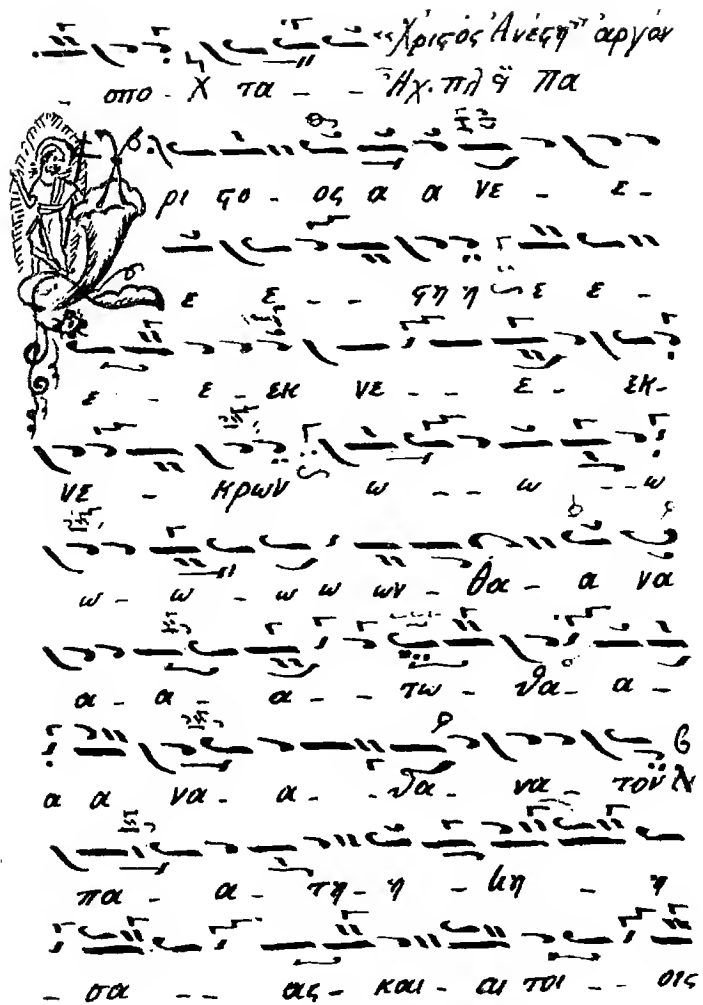 «Χριστός Ἀνέστη» ἀργόν
- οπο - Χ τα - - Ἦχ. πλ ἅ Πα
ρι στο - ος α α νε - ε -
ε ε - - στη η ε ε -
ε - ε - εκ νε - - ε - εκ -
νε - κρων ω - - ω - - ω
ω - ω - ω ω ων - θα - α να
α - α α - - τω - θα - α -
α α να - α - - θα - να - τον
πα - α - τη - η - κη - η
- σα - - ας - και - αι τοι - - οις